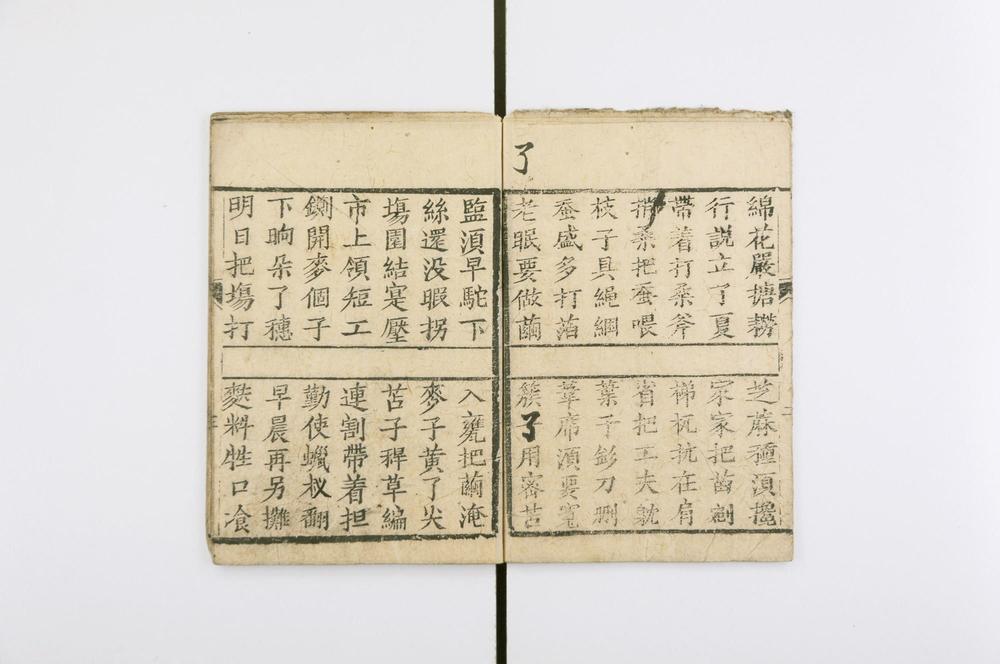 綿花嚴搪耮
芝蔴種湏攙
行説立了夏
家家把苗剜
帶着打桑斧
梯杌抗在肩
捎桑把蚕喂
省把工夫躭
枝子具繩綑
葉子釤刀刪
蚕盛多打箔
葦席湏要寬
了
老眠要做繭
簇了用密苫
監湏早駝下
入甕把繭淹
絲還没暇拐
麥子黄了尖
塲園結寔壓
苫子稈草編
市上領短工
連割帶着担
鍘開麥個子
勤使蠟杈翻
下晌朵了穗
早晨再另攤
明日把塲打
麩料牲口飡